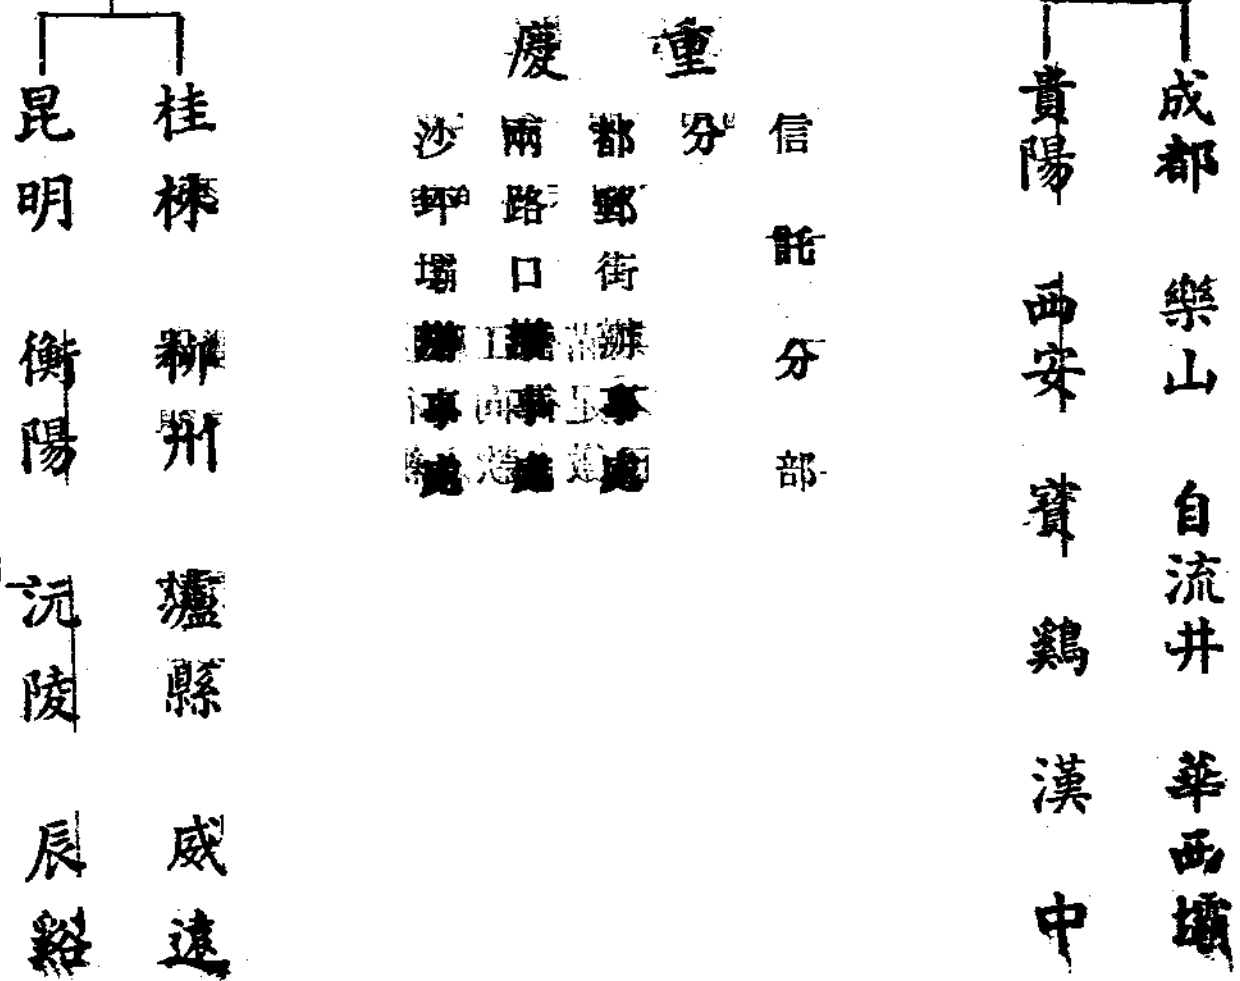 成都 樂山 自流井 華西壩
貴陽 西安 寶鷄 漢中
重慶
信託分部
分
都郵街辦事處
兩路口辦事處
沙坪壩辦事處
桂林 柳州 瀘縣 威遠
昆明 衡陽 沅陵 辰谿